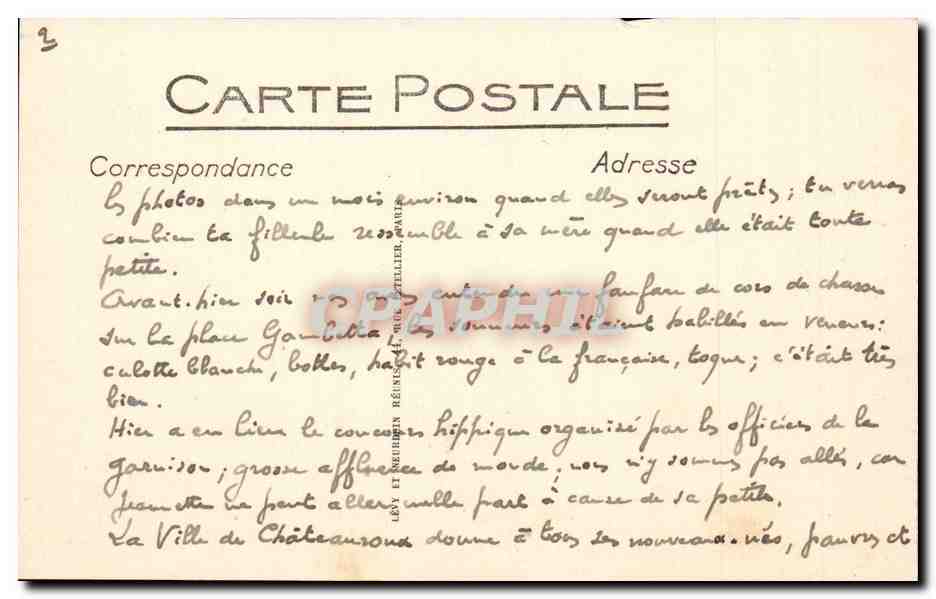 2
CARTE POSTALE
Correspondance
Adresse
les photos dans un mois environ quand elles seront prêtes ; tu verras
combien ta filleule ressemble à sa mère quand elle était toute
petite.
Avant-hier soir nous avons entendu une fanfare de cors de chasse
sur la place Gambetta, les sonneurs étaient habillés en veneurs :
culotte blanche, bottes, habit rouge à la française, toque ; c'était très
bien.
Hier a eu lieu le concours hippique organisé par les officiers de la
garnison ; grosse affluence de monde ; nous n'y sommes pas allés, car
Jeannette ne peut aller nulle part à cause de sa petite.
La Ville de Châteauroux donne à tous ses nouveaux-nés, pauvres et
LÉVY ET NEURDEIN RÉUNIS, 44, RUE LETELLIER, PARIS
CPAPHIL